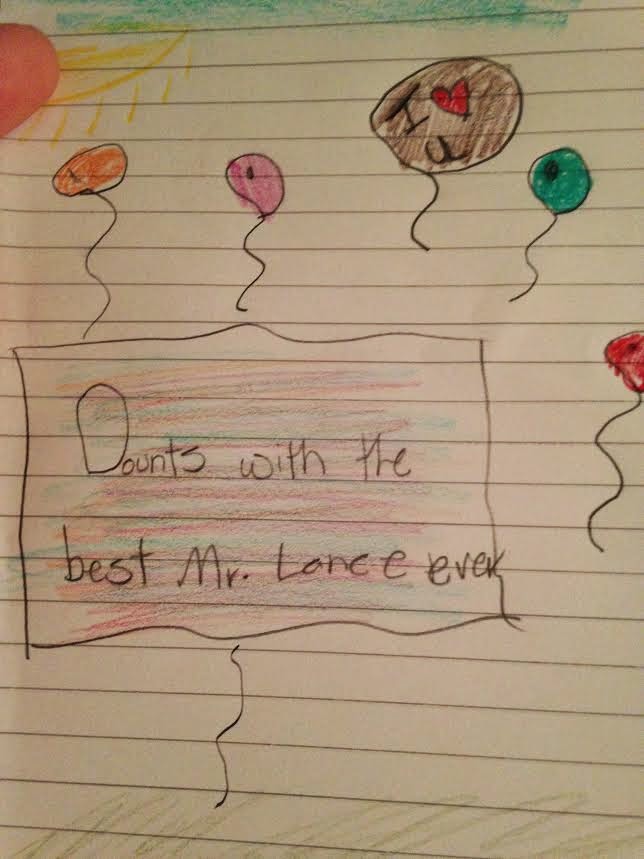 I ♥
u
Dounts with the
best Mr. Lance ever